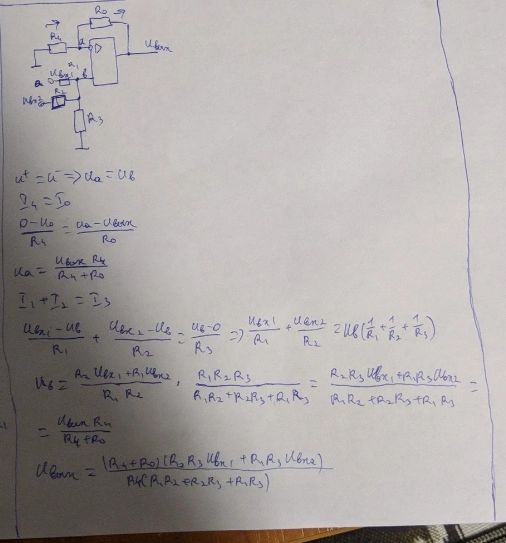 R₀ →
→
R₄ a ▷ Uвых
a Uвх1 R₁ в
Uвх2 R₂
R₃
U⁺ = U⁻ => Ua = Uв
I₄ = I₀
(0 - U₀)/R₄ = (Ua - Uвых)/R₀
Ua = (Uвых R₄)/(R₄ + R₀)
I₁ + I₂ = I₃
(Uвх1 - Uв)/R₁ + (Uвх2 - Uв)/R₂ = (Uв - 0)/R₃ => Uвх1/R₁ + Uвх2/R₂ = Uв(1/R₁ + 1/R₂ + 1/R₃)
Uв = (R₂Uвх1 + R₁Uвх2)/(R₁R₂) · (R₁R₂R₃)/(R₁R₂ + R₂R₃ + R₁R₃) = (R₂R₃Uвх1 + R₁R₃Uвх2)/(R₁R₂ + R₂R₃ + R₁R₃) =
= (Uвых R₄)/(R₄ + R₀)
Uвых = (R₄ + R₀)(R₂R₃Uвх1 + R₁R₃Uвх2)/(R₄(R₁R₂ + R₂R₃ + R₁R₃))